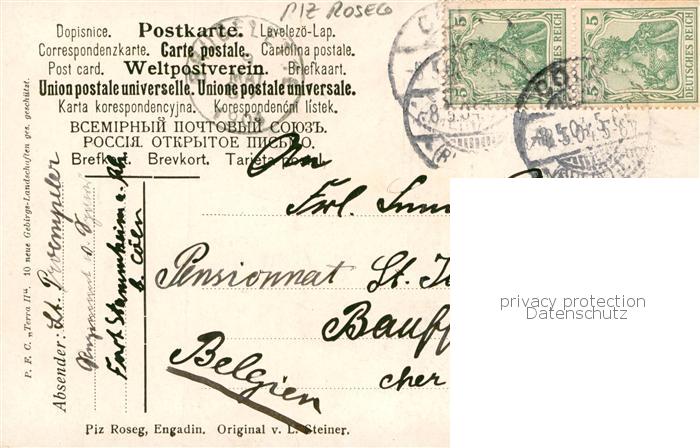 PIZ ROSEG
Dopisnice. Postkarte. Levelező-Lap.
Correspondenzkarte. Carte postale. Cartolina postale.
Post card. Weltpostverein. Briefkaart.
Union postale universelle. Unione postale universale.
Karta korespondencyjna. Korespondenční lístek.
ВСЕМІРНЫЙ ПОЧТОВЫЙ СОЮЗЪ.
РОССІЯ. ОТКРЫТОЕ ПИСЬМО.
Brefkort. Brevkort. Tarjeta postal.
5 DEUTSCHES REICH 5
5 DEUTSCHES REICH
8.5.04.5-
An
Frl.
Pensionnat St.
Bauff
cher
Belgien
P. F. C. „Terra II“. 10 neue Gebirgs-Landschaften ges. geschützt.
Absender: Lt.
Fort Stammheim a. Rh.
b. Cöln
Piz Roseg, Engadin. Original v. L. Steiner.
privacy protection
Datenschutz